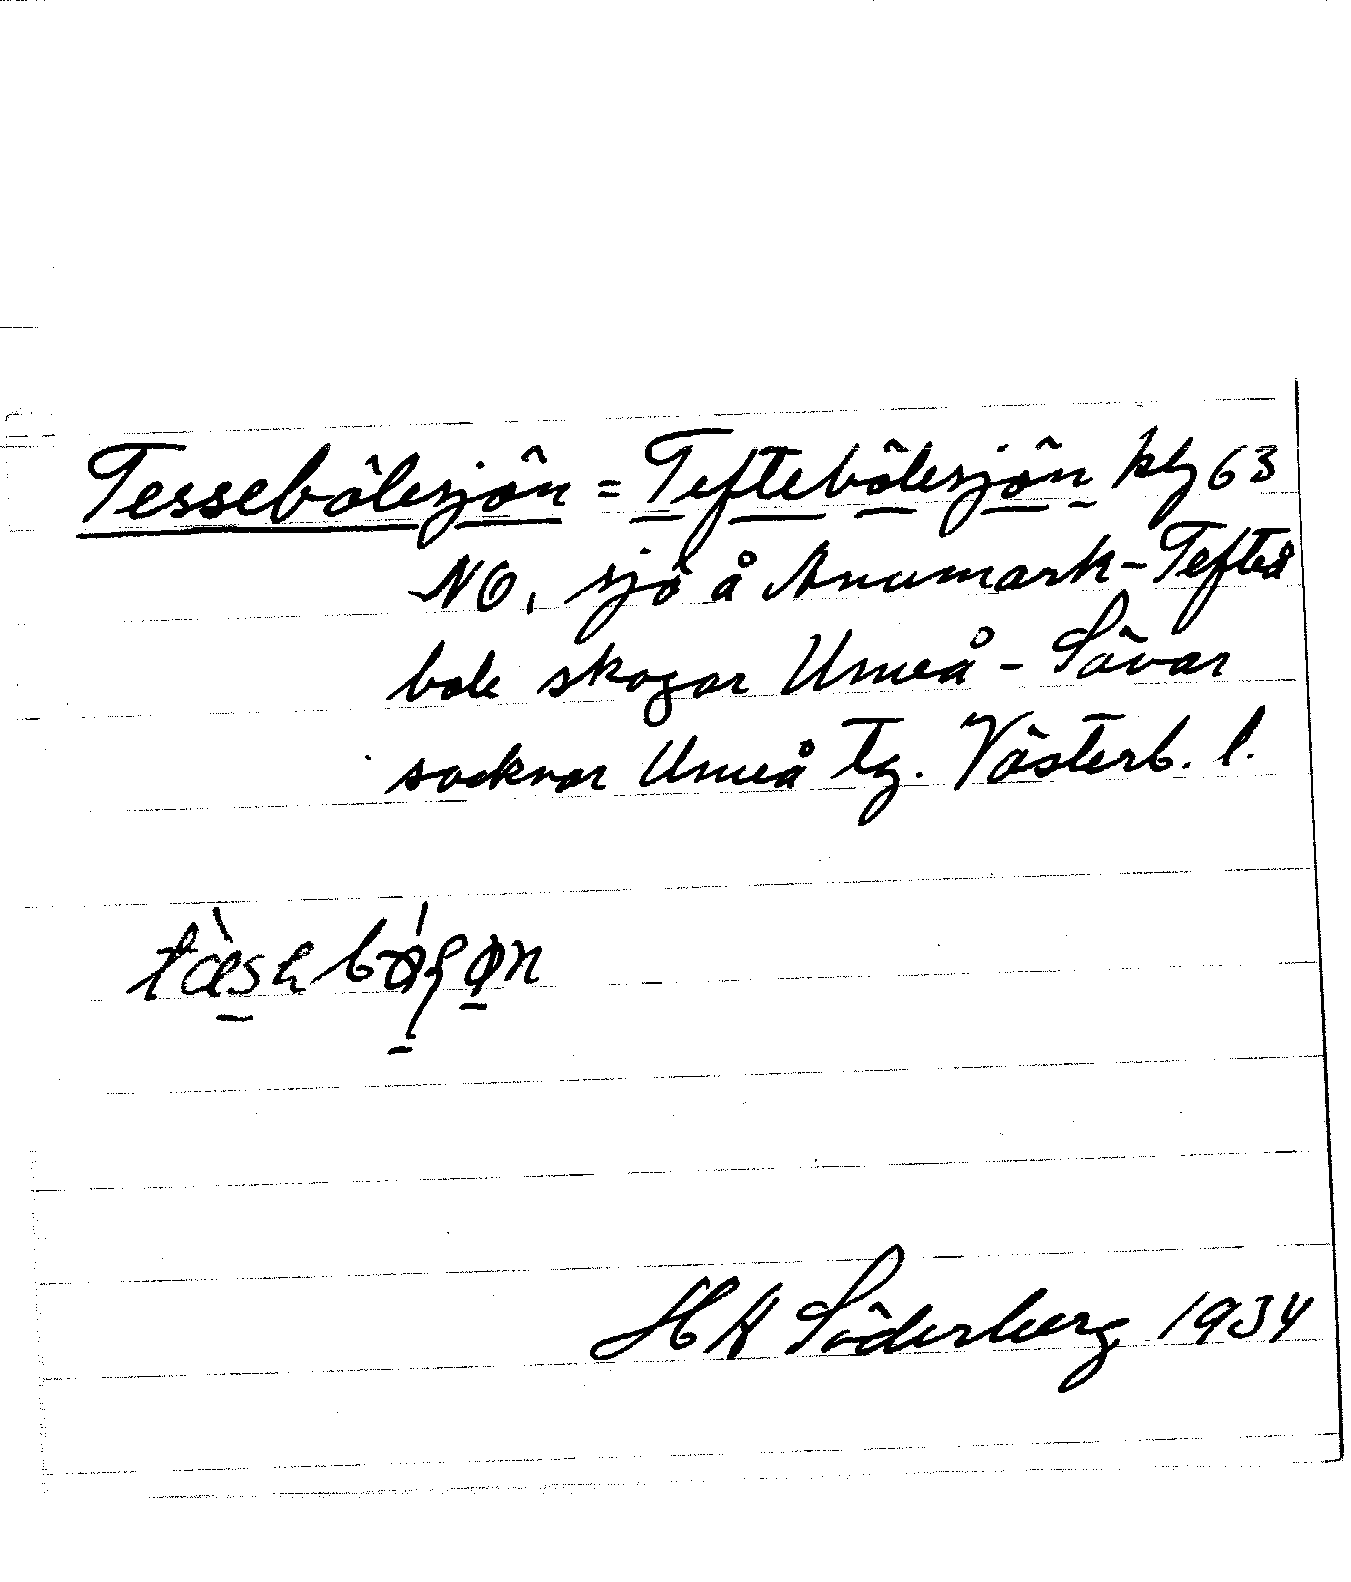 Tessebölesjön = Teftebölesjön kbl 63
NO, sjö å Anumark-Tefte
bole skogar Umeå - Sävar
socknar Umeå tg. Västerb. l.
H A Söderberg 1934